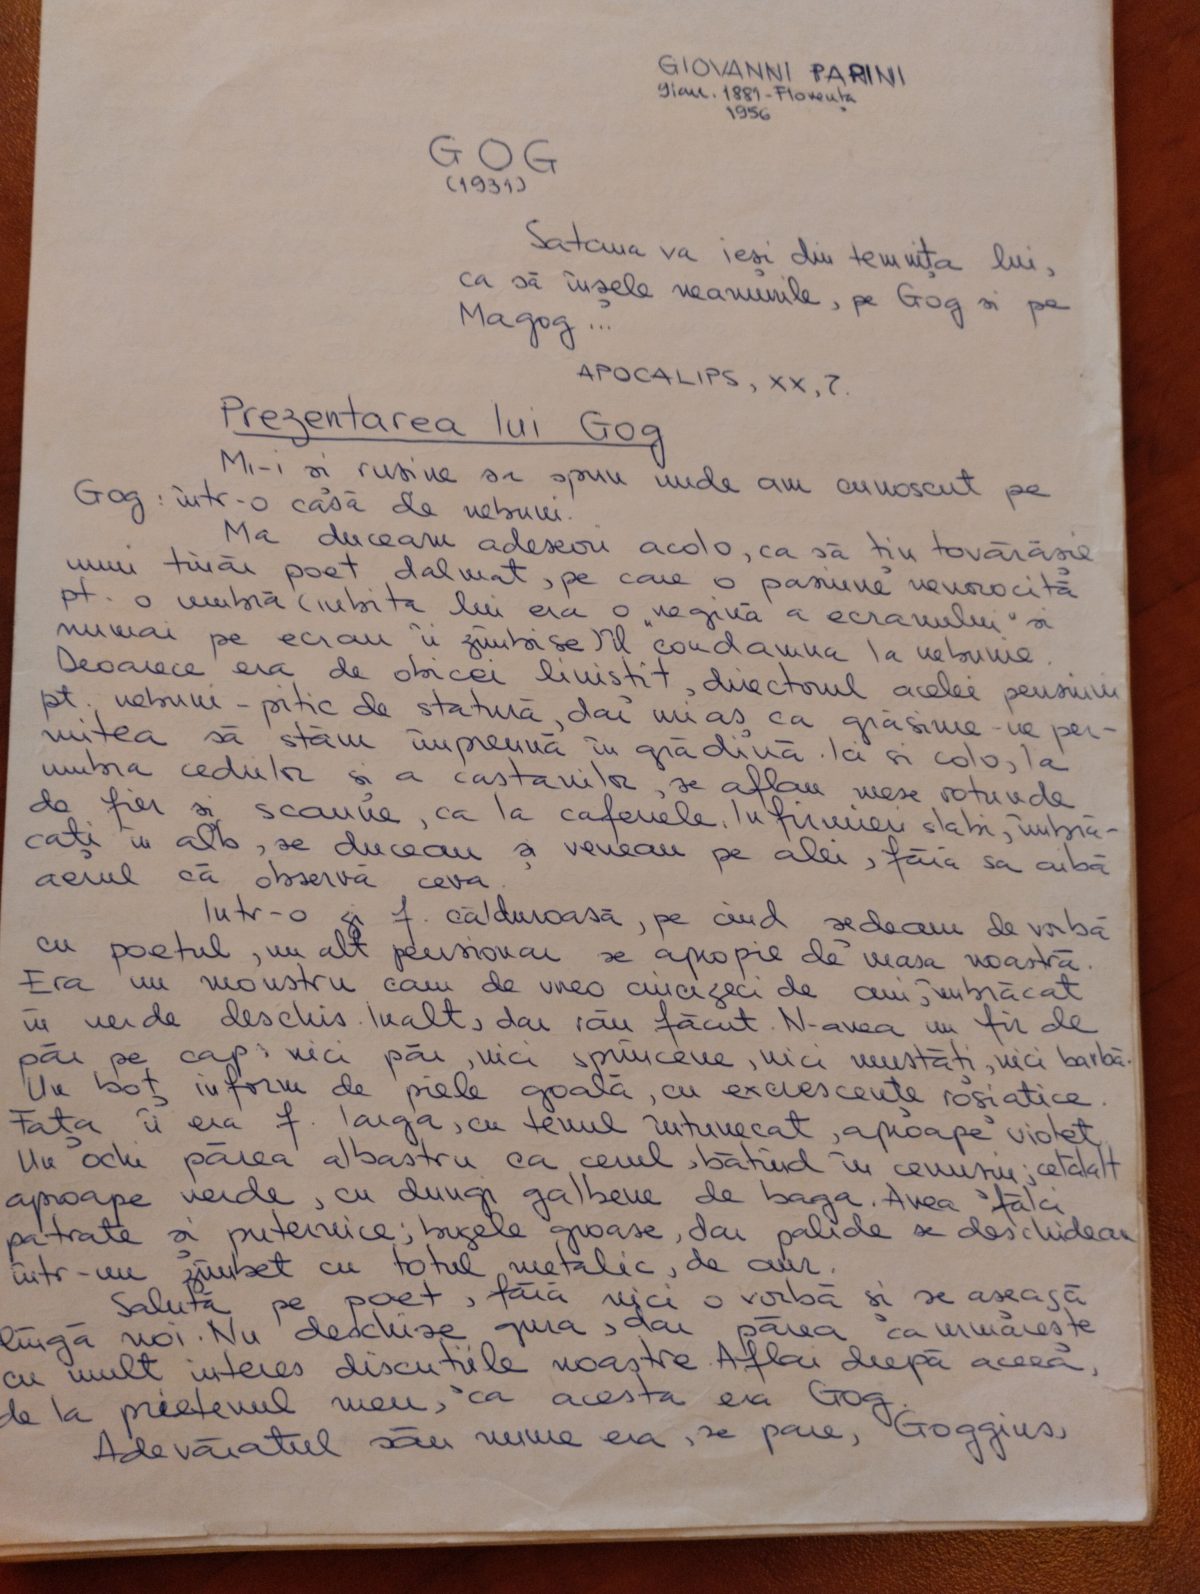 GIOVANNI PARINI
9 ian. 1881 - Florența
1956
GOG
(1931)
Satana va ieși din temnița lui,
ca să înșele neamurile, pe Gog si pe
Magog ...
APOCALIPS, XX, 7.
Prezentarea lui Gog
Mi-i si rușine sa spun unde am cunoscut pe
Gog: într-o casă de nebuni.
Ma duceam adeseori acolo, ca să țin tovărășie
unui tînăr poet dalmat, pe care o pasiune nenorocită
pt. o umbră (iubita lui era o "regină a ecranului" si
numai pe ecran îi zîmbise) îl condamna la nebunie.
Deoarece era de obicei linistit, directorul acelei pensiuni
pt. nebuni - pitic de statură, dar urias ca grăsime - ne per-
mitea să stăm împreună în grădină. Ici si colo, la
umbra cedrilor și a castanilor, se aflau mese rotunde
de fier și scaune, ca la cafenele. Infirmieri slabi, îmbră-
cați în alb, se duceau și veneau pe alei, fără sa aibă
aerul că observă ceva.
Intr-o zi f. călduroasă, pe cînd sedeam de vorbă
cu poetul, un alt pensionar se apropie de masa noastră.
Era un monstru cam de vreo cincizeci de ani, îmbrăcat
în verde deschis. Inalt, dar rău făcut. N-avea un fir de
păr pe cap: nici păr, nici sprîncene, nici mustăți, nici barbă.
Un boț inform de piele goală, cu excrescențe roșiatice.
Fața îi era f. larga, cu tenul întunecat, aproape violet.
Un ochi părea albastru ca cerul, bătînd în cenusiu; celălalt
aproape verde, cu dungi galbene de baga. Avea fălci
patrate si puternice; buzele groase, dar palide se deschideau
într-un zîmbet cu totul metalic, de aur.
Salută pe poet, fără nici o vorbă și se asează
lîngă noi. Nu deschise gura, dar părea ca urmărește
cu mult interes discuțiile noastre. Aflai după aceea,
de la prietenul meu, ca acesta era Gog.
Adevăratul său nume era, se pare, Goggins,